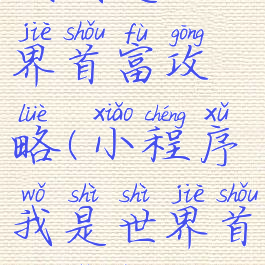 jiè shǒu fù gōng
界首富攻
lüè xiǎo chéng xǔ
略(小程序
wǒ shì shì jiè shǒu
我是世界首